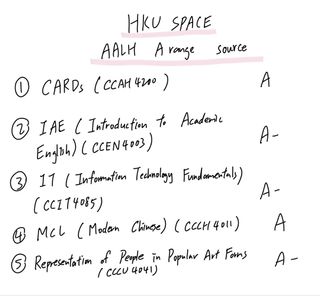 HKU SPACE
AALH A range source
① CARDs (CCAH 4200) A
② IAE (Introduction to Academic
English) (CCEN4003) A-
③ IT (Information Technology Fundamentals)
(CCIT4085) A-
④ MCL (Modern Chinese) (CCCH 4011) A
⑤ Representation of People in Popular Art Forms
(CCCU 4041) A-